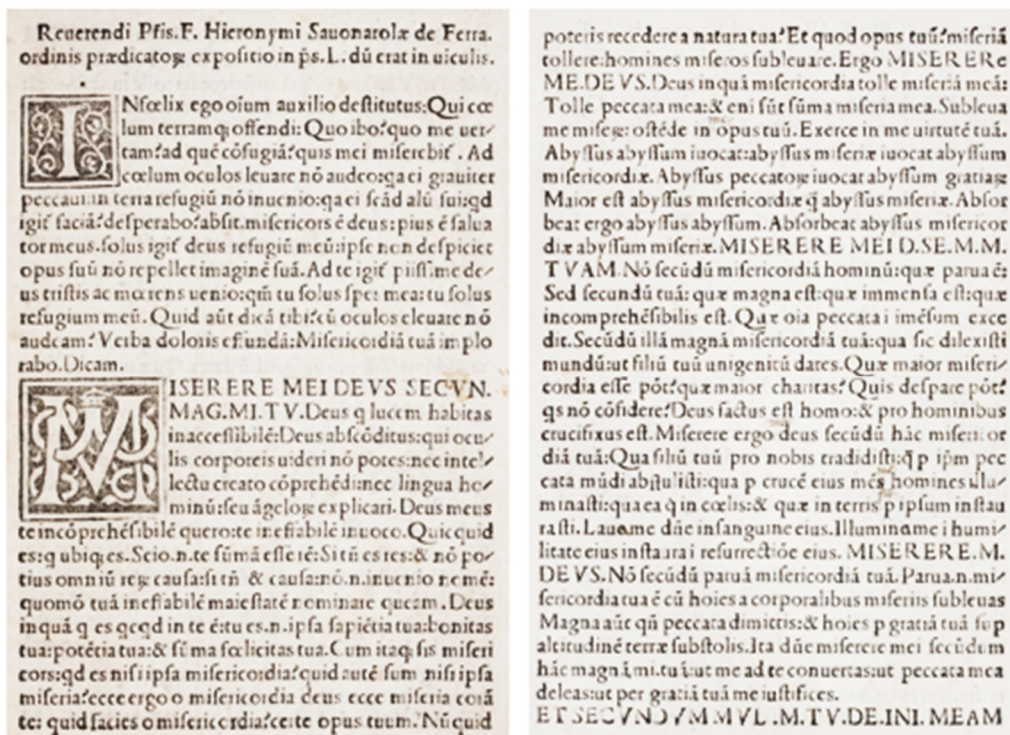 Reuerendi Pſis.F. Hieronymi Sauonarolæ de Ferra.
ordinis prædicatoꝝ expoſitio in pſ.L. dū erat in uiculis.
INfœlix ego oium auxilio deſtitutus:Qui cœ
lum terramq; offendi: Quo ibo?quo me uer-
tam?ad quē cōfugiā?quis mei miſerebit̃ . Ad
cœlum oculos leuare nō audeo:qa ei grauiter
peccaui.in terra refugiū nō inuenio:qa ei ſcād alū fui:qd
igit̃ faciā?deſperabo?abſit.miſericors ē deus: pius ē ſalua
tor meus.ſolus igit̃ deus refugiū meū:ipſe non deſpiciet
opus ſuū nō repellet imaginē ſuā. Ad te igit̃ piiſſime de-
us triſtis ac mœrens uenio:qm̃ tu ſolus ſpes mea:tu ſolus
refugium meū. Quid aūt dicā tibi?cū oculos eleuare nō
audeam? Verba doloris effundā:Miſericordiā tuā implo
rabo.Dicam.
MISERERE MEI DEVS SECVN.
MAG.MI.TV.Deus q lucem habitas
inacceſſibilē:Deus abſcōditus:qui ocu-
lis corporeis uideri nō potes:nec intel-
lectu creato cōprehēdi:nec lingua ho-
minū:ſeu āgeloꝝ explicari. Deus meus
te incōprehēſibilē quero:te ineffabilē inuoco. Quicquid
es:q ubiq; es. Scio.n.te ſūmā eſſe rē:Si tñ es res:& nō po-
tius omniū reꝝ cauſa:ſi tñ & cauſa:nō.n.inuenio nomē:
quomō tuā ineffabilē maieſtatē nominare queam. Deus
inquā q es qcqd in te ē:tu es.n.ipſa ſapiētia tua:bonitas
tua:potētia tua:& ſūma fœlicitas tua. Cum itaq; ſis miſeri
cors:qd es niſi ipſa miſericordia?quid autē ſum niſi ipſa
miſeria?ecce ergo o miſericordia deus ecce miſeria corā
te: quid facies o miſericordia?certe opus tuum. Nūquid
poteris recedere a natura tua?Et quod opus tuū?miſeriā
tollere:homines miſeros ſubleuare. Ergo MISERERe
ME.DEVS.Deus inquā miſericordia tolle miſeriā meā:
Tolle peccata mea:& eni ſūt ſūma miſeria mea. Subleua
me miſeꝝ: oſtēde in opus tuū. Exerce in me uirtutē tuā.
Abyſſus abyſſum iuocat:abyſſus miſeriæ iuocat abyſſum
miſericordiæ. Abyſſus peccatoꝝ iuocat abyſſum gratiaꝝ
Maior eſt abyſſus miſericordiæ q̄ abyſſus miſeriæ. Abſor
beat ergo abyſſus abyſſum. Abſorbeat abyſſus miſericor
diæ abyſſum miſeriæ. MISERERE MEI D.SE.M.M.
TVAM.Nō ſecūdū miſericordiā hominū:quæ parua ē:
Sed ſecundū tuā: quæ magna eſt:quæ immenſa eſt:quæ
incomprehēſibilis eſt. Quæ oia peccata i imēſum exce
dit.Secūdū illā magnā miſericordiā tuā:qua ſic dilexiſti
mundū:ut filiū tuū unigenitū dares.Quæ maior miſeri-
cordia eſſe pōt?quæ maior charitas? Quis deſpare pōt?
qs nō cōfidere?Deus factus eſt homo:& pro hominibus
crucifixus eſt. Miſerere ergo deus ſecūdū hāc miſericor
diā tuā:Qua filiū tuū pro nobis tradidiſti:q̄ p ipm pec
cata mūdi abſtuliſti:qua p crucē eius mēs homines illu-
minaſti:qua ea q̄ in cœlis:& quæ in terris p ipſum inſtau
raſti. Laua me dñe in ſanguine eius. Illumina me i humi-
litate eius inſtaura i reſurrectiōe eius. MISERERE.M.
DEVS.Nō ſecūdū paruā miſericordiā tuā. Parua.n.mi-
ſericordia tua ē cū hoies a corporalibus miſeriis ſubleuas
Magna aūt qn̄ peccata dimittis:& hoies p gratiā tuā ſup
altitudinē terræ ſubſtolis.Ita dñe miſerere mei ſecūdum
hāc magnā.mi.tuā:ut me ad te conuertas:ut peccata mea
deleas:ut per gratiā tuā me iuſtifices.
ET SECVNDVM MVL .M.TV.DE.INI. MEAM